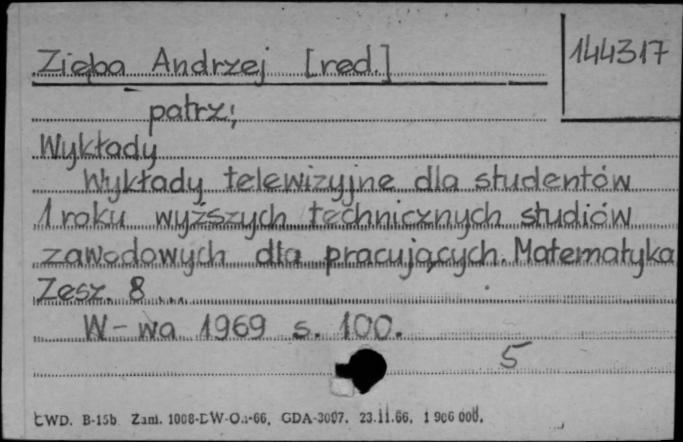 Zięba Andrzej [red.]
144317
patrz;
Wykłady
Wykłady telewizyjne dla studentów
1 roku wyższych technicznych studiów
zawodowych dla pracujących. Matematyka
Zesz. 8 ...
W-wa 1969 s. 100.
5
CWD. B-15b Zam. 1008-DW-O.-66. GDA-3097. 23.11.66. 1 906 000.